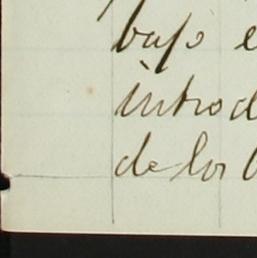 bajo e
introd
de los